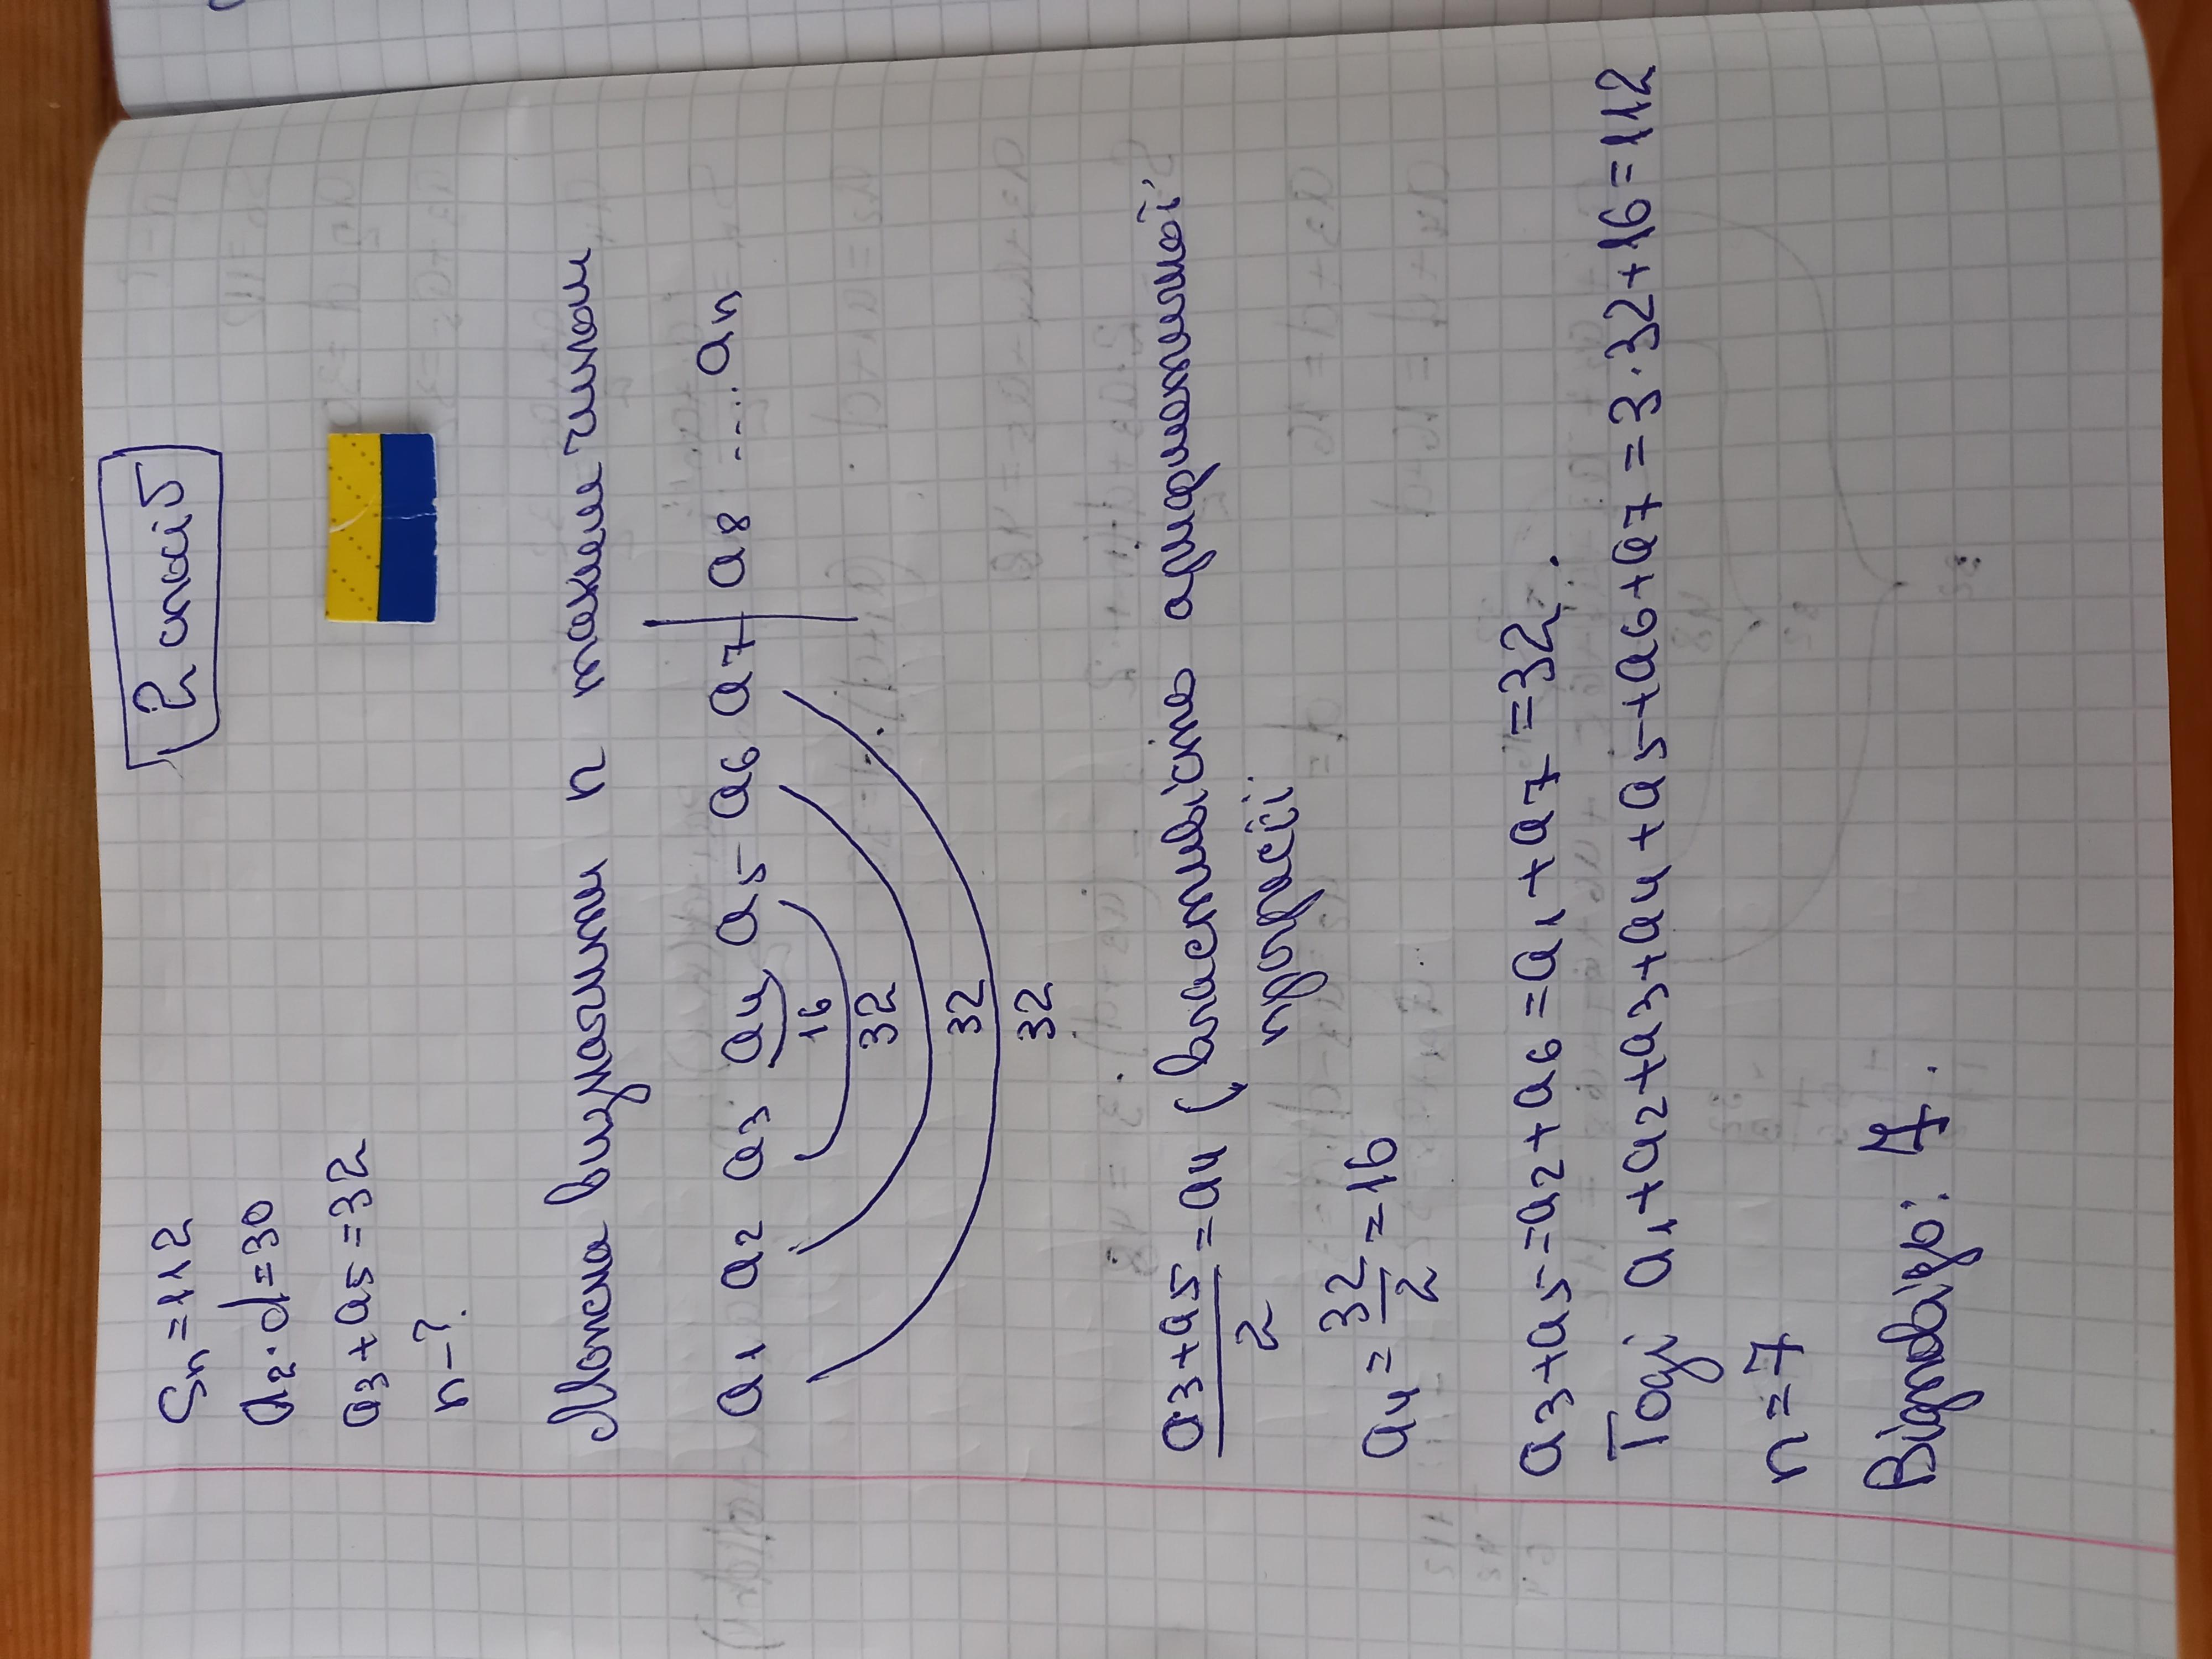 2 спосіб
Sn = 112
a2 · d = 30
a3 + a5 = 32
n - ?
Можна визначити n таким чином
a1 a2 a3 a4 a5 a6 a7 | a8 .... an
16
32
32
32
a3 + a5 / 2 = a4 (властивість арифметичної
прогресії
a4 = 32/2 = 16
a3 + a5 = a2 + a6 = a1 + a7 = 32.
Тоді a1 + a2 + a3 + a4 + a5 + a6 + a7 = 3 · 32 + 16 = 112
n = 7
Відповідь: 7.